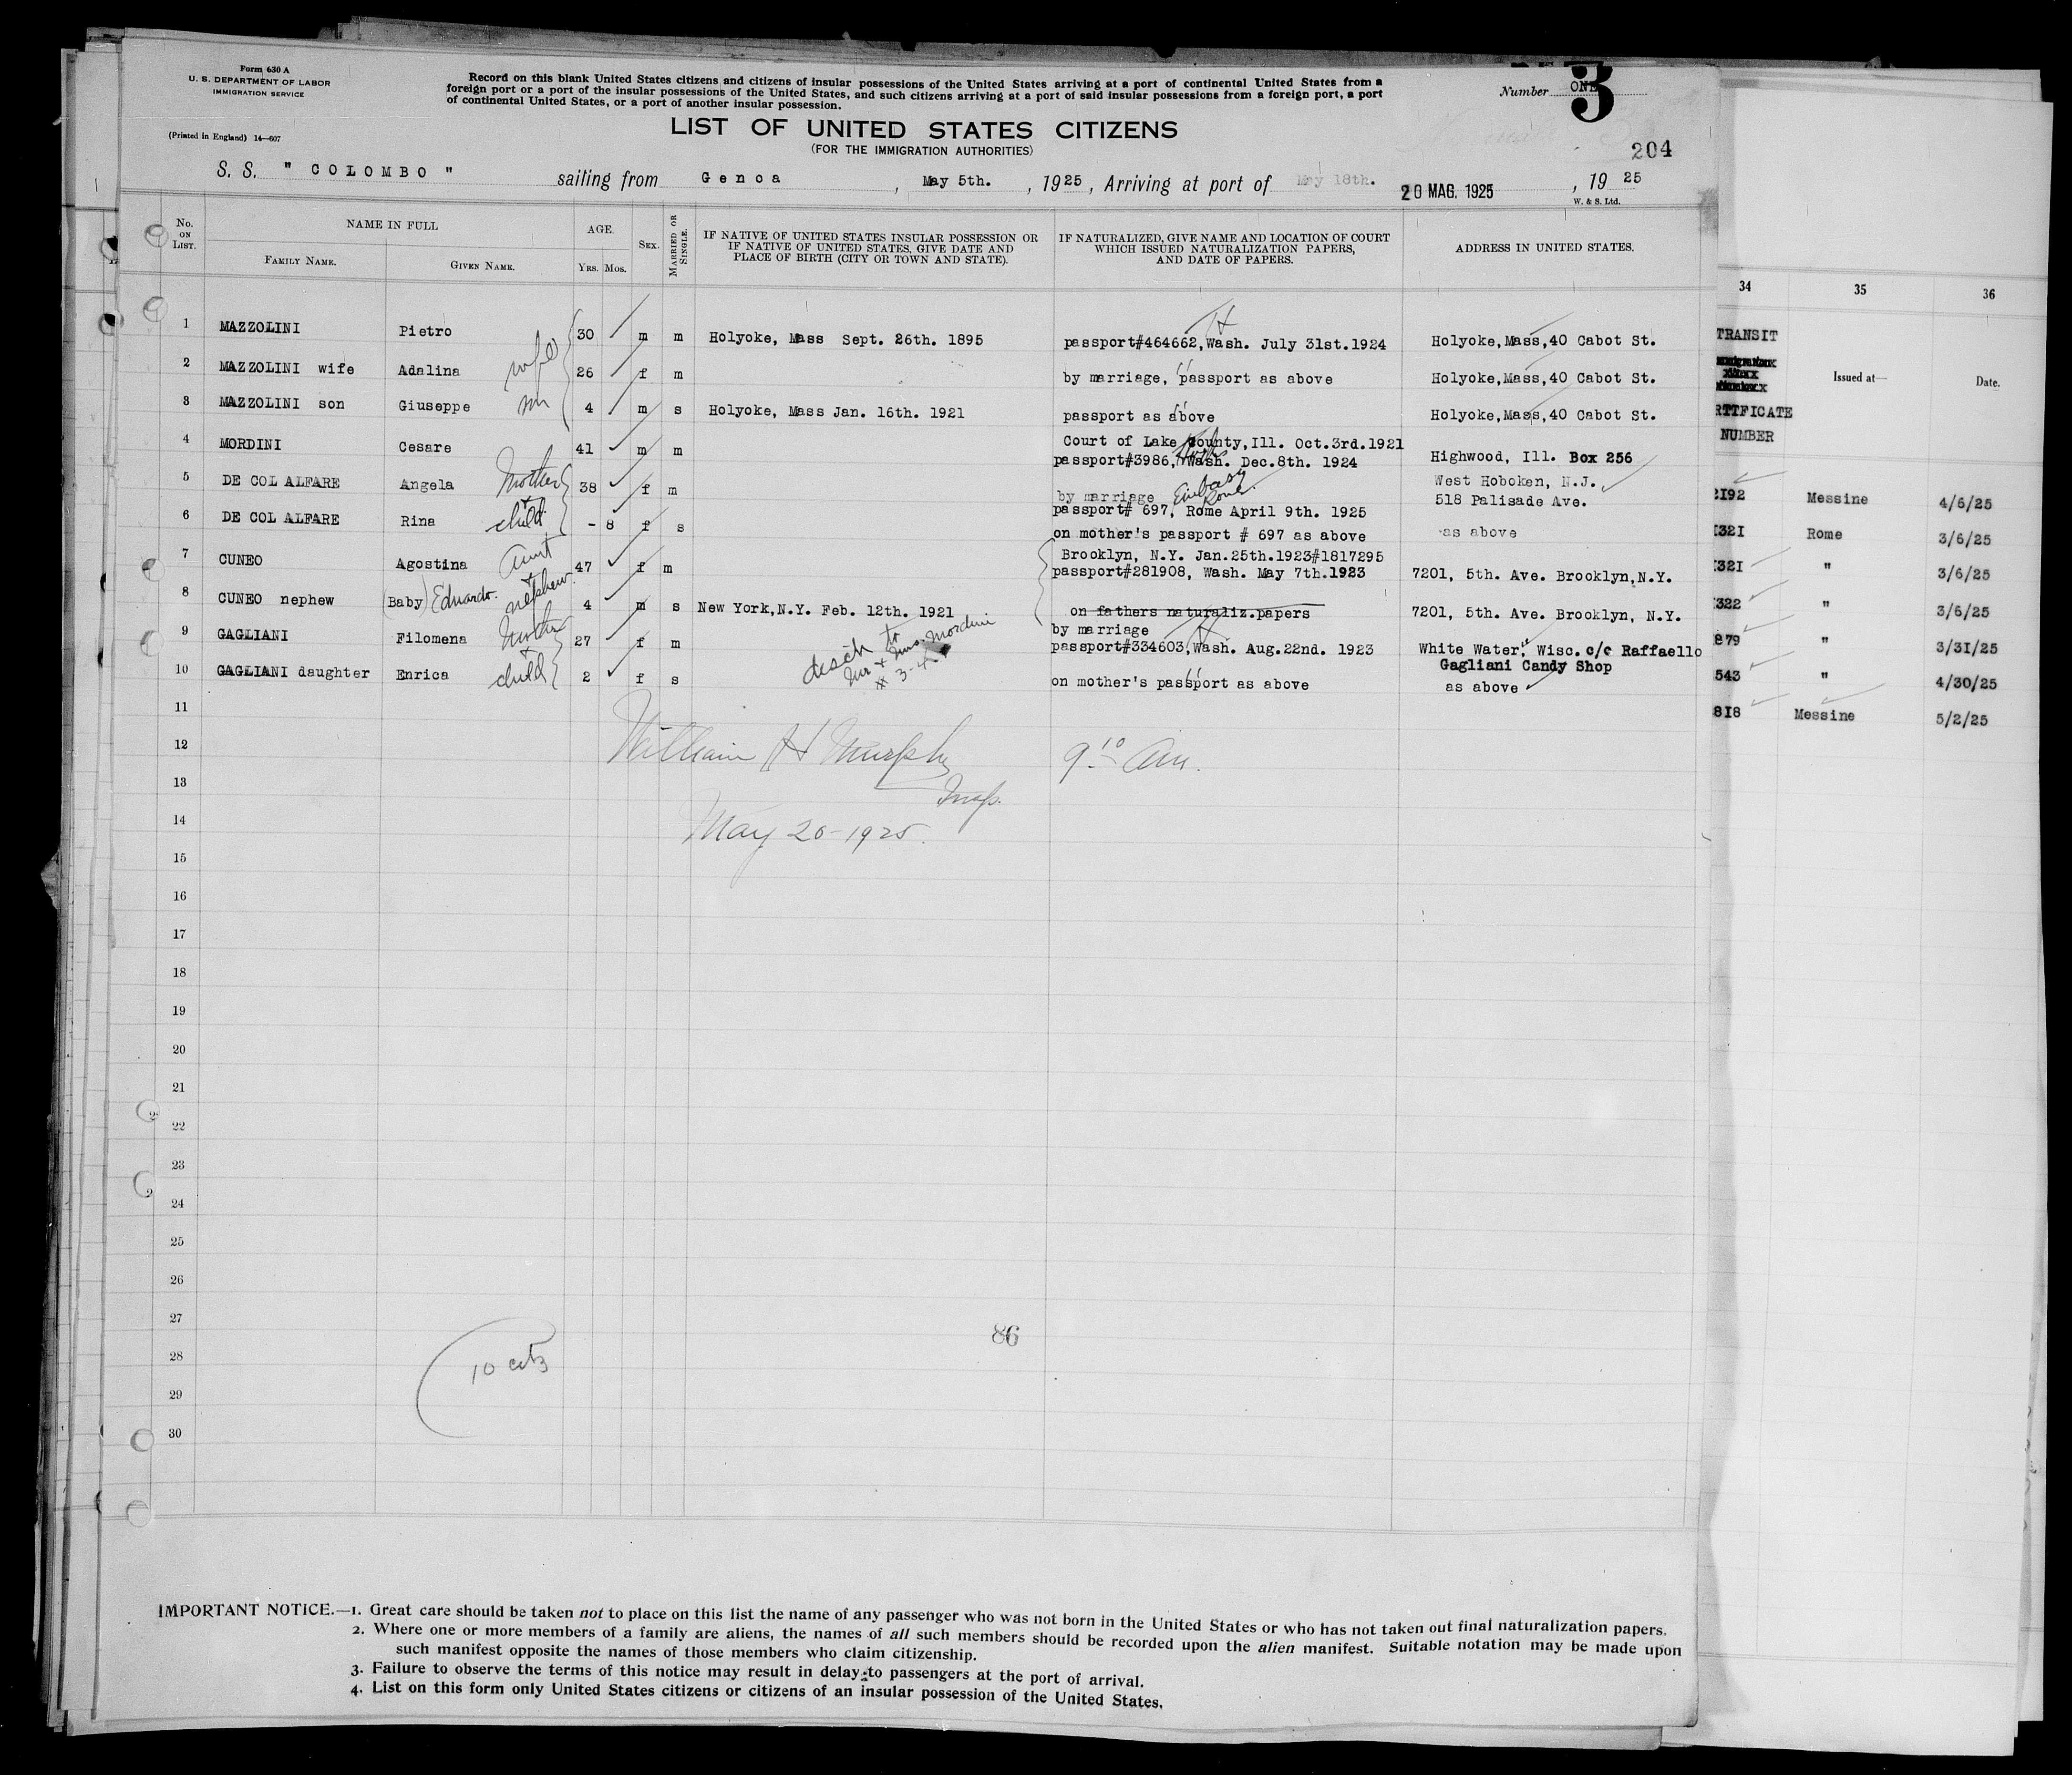 Form 630 A
U. S. DEPARTMENT OF LABOR
IMMIGRATION SERVICE
(Printed in England) 14—607
Record on this blank United States citizens and citizens of insular possessions of the United States arriving at a port of continental United States from a
foreign port or a port of the insular possessions of the United States, and such citizens arriving at a port of said insular possessions from a foreign port, a port
of continental United States, or a port of another insular possession.
Number ONE 3
LIST OF UNITED STATES CITIZENS
(FOR THE IMMIGRATION AUTHORITIES)
204
S. S. " COLOMBO " sailing from Genoa, May 5th., 1925, Arriving at port of May 18th. 20 MAG. 1925, 19 25
W. & S. Ltd.
No. ON LIST. NAME IN FULL AGE. SEX. MARRIED OR SINGLE. IF NATIVE OF UNITED STATES INSULAR POSSESSION OR IF NATIVE OF UNITED STATES, GIVE DATE AND PLACE OF BIRTH (CITY OR TOWN AND STATE). IF NATURALIZED, GIVE NAME AND LOCATION OF COURT WHICH ISSUED NATURALIZATION PAPERS, AND DATE OF PAPERS. ADDRESS IN UNITED STATES.
FAMILY NAME. GIVEN NAME. YRS. MOS.
1 MAZZOLINI Pietro 30 m m Holyoke, Mass Sept. 26th. 1895 passport#464662,Wash. July 31st.1924 Holyoke,Mass,40 Cabot St.
2 MAZZOLINI wife Adalina wife 26 f m by marriage, passport as above Holyoke,Mass,40 Cabot St.
3 MAZZOLINI son Giuseppe son 4 m s Holyoke, Mass Jan. 16th. 1921 passport as above Holyoke,Mass,40 Cabot St.
4 MORDINI Cesare 41 m m Court of Lake County,Ill. Oct.3rd.1921
passport#3986, Wash. Dec.8th. 1924 Highwood, Ill. Box 256
5 DE COL ALFARE Angela Mother & 38 f m by marriage Embassy Rome
passport# 697, Rome April 9th. 1925 West Hoboken, N.J.
518 Palisade Ave.
6 DE COL ALFARE Rina child - 8 f s on mother's passport # 697 as above as above
7 CUNEO Agostina Aunt & 47 f m Brooklyn, N.Y. Jan.25th.1923#1817295
passport#281908, Wash. May 7th.1923 7201, 5th. Ave. Brooklyn,N.Y.
8 CUNEO nephew (Baby) Eduardo. nephew. 4 m s New York,N.Y. Feb. 12th. 1921 on fathers naturaliz.papers 7201, 5th. Ave. Brooklyn, N.Y.
9 GAGLIANI Filomena Mother & 27 f m by marriage
passport#334603,Wash. Aug.22nd. 1923 White Water, Wisc. c/c Raffaello
Gagliani Candy Shop
10 GAGLIANI daughter Enrica child 2 f s on mother's passport as above as above
disch to
Mr & Mrs. Mordini
# 3-4
11
12
13
14
15
16
17
18
19
20
21
22
23
24
25
26
27
28
29
30
William H Murphy
Insp.
May 20-1925.
9 10 Am.
86
10 cits
IMPORTANT NOTICE.—1. Great care should be taken not to place on this list the name of any passenger who was not born in the United States or who has not taken out final naturalization papers.
2. Where one or more members of a family are aliens, the names of all such members should be recorded upon the alien manifest. Suitable notation may be made upon
such manifest opposite the names of those members who claim citizenship.
3. Failure to observe the terms of this notice may result in delay to passengers at the port of arrival.
4. List on this form only United States citizens or citizens of an insular possession of the United States.
34 35 36
TRANSIT
Issued at— Date.
RTIFICATE
NUMBER
2192 Messine 4/6/25
1321 Rome 3/6/25
1321 " 3/6/25
1322 " 3/6/25
879 " 3/31/25
543 " 4/30/25
818 Messine 5/2/25